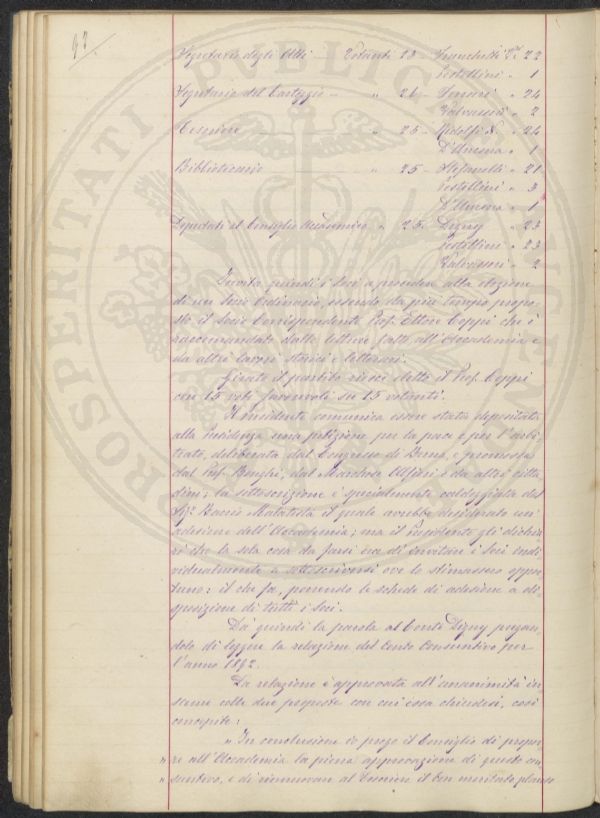 97
Segretario degli Atti — Votanti 23 — Franchetti Voti 22
Pestellini " 1
Segretario del Carteggio — " 26 — " 24
Valvassori " 2
Tesoriere — " 25 — Ridolfi N. " 24
D'Ancona " 1
Bibliotecario " 25 — Stefanelli " 21
Pestellini " 3
D'Ancona " 1
Deputati al Consiglio Accademico " 25 — Digny " 23
Pestellini " 23
Valvassori " 2
Invita quindi i Soci a procedere alla elezione
di un Socio Ordinario, essendo da più tempo propo-
sto il Socio Corrispondente Prof. Ettore Coppi che è
raccomandato dalle letture fatte all'Accademia e
da altri lavori storici e letterari.
Girato il partito riesce eletto il Prof. Coppi
con 15 voti favorevoli su 15 votanti.
Il Presidente comunica essere stata depositata
alla Presidenza una petizione per la pace e per l'arbi-
trato, deliberata dal Congresso di Berna, e promossa
dal Prof. Bonghi, dal Marchese Alfieri e da altri citta-
dini; la sottoscrizione è specialmente caldeggiata dal
Sigr. Malatesta il quale avrebbe desiderato un'
adesione dell'Accademia; ma il Presidente gli dichia-
rò che la sola cosa da farsi era di invitare i Soci indi-
vidualmente a sottoscriversi ove lo stimassero oppor-
tuno: il che fa, ponendo le schede di adesione a di-
sposizione di tutti i Soci.
Dà quindi la parola al Conte Digny pregan-
dolo di leggere la relazione del Conto Consuntivo per
l'anno 1892.
La relazione è approvata all'unanimità in-
sieme colle due proposte con cui essa chiudesi, così
concepite:
" In conclusione io prego il Consiglio di propor-
" re all'Accademia la piena approvazione di questo con-
" suntivo, e di rinnovare al Tesoriere il ben meritato plauso
PROSPERITATI PUBLICAE AUGENDAE